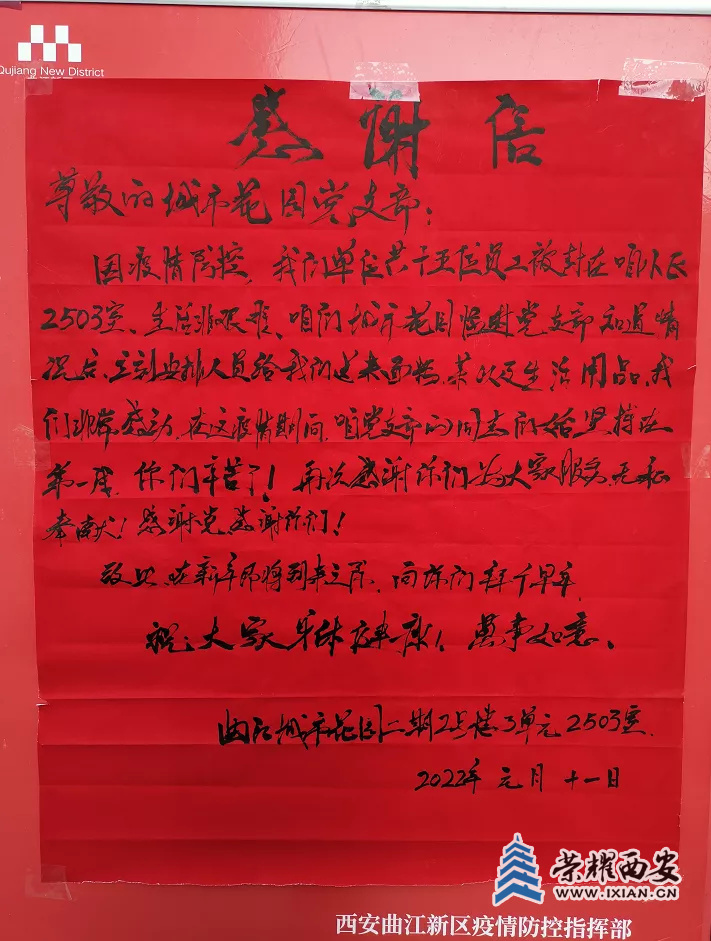 Qujiang New District
感谢信
尊敬的城市花园党支部:
因疫情防控,我们单位共十五位员工被封在咱小区
2503室、生活非常艰难、咱们城市花园临时党支部知道情
况后,立刻安排人员给我们送来面粉、菜以及生活用品,我
们非常感动,在这疫情期间,咱党支部的同志们始坚持在
第一线,你们辛苦了!再次感谢你们为大家服务,无私
奉献!感谢党感谢你们!
致此,在新年即将到来之际,向你们拜个早年,
祝:大家身体健康!萬事如意、
曲江城市花园二期2号楼3单元2503室.
2022年元月十一日
荣耀西安
WWW.IXIAN.CN
西安曲江新区疫情防控指挥部